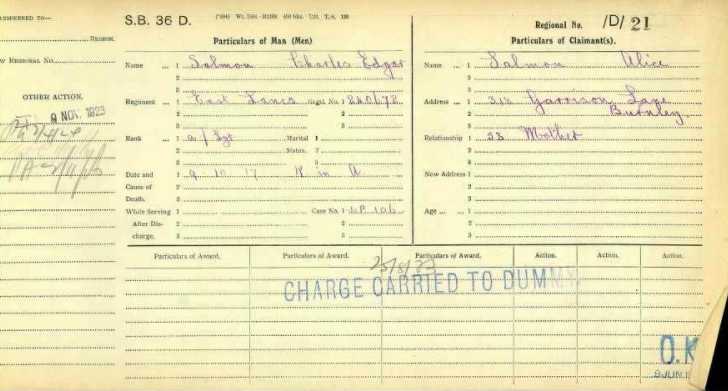 ANSFERRED TO—
REGION.
W REGIONAL NO.
OTHER ACTION.
9 NOV. 1923
S.B. 36 D.
Regional No. /D/ 21
Particulars of Man (Men)
Particulars of Claimant(s).
Name ... 1 Salmon Charles Edgar
2
3
Name ... 1 Salmon Alice
2
3
Regiment ... 1 East Lancs Regtl. No. 1
2 2
3 3
Address ... 1 Garrison Lane
2 Burnley.
3
Rank ... 1 a/Sgt Marital 1
2 Status. 2
3 3
Relationship 1 Mother
2
3
Date and 1 9 10 17 K in A
Cause of 2
Death. 3
New Address 1
2
3
While Serving 1 Case No. 1
After Dis- 2 2
charge. 3 3
Age ... 1
2
3
Particulars of Award. Particulars of Award. Particulars of Award. Action. Action. Action.
CHARGE CARRIED TO DUMMY
O.K
9 JUN